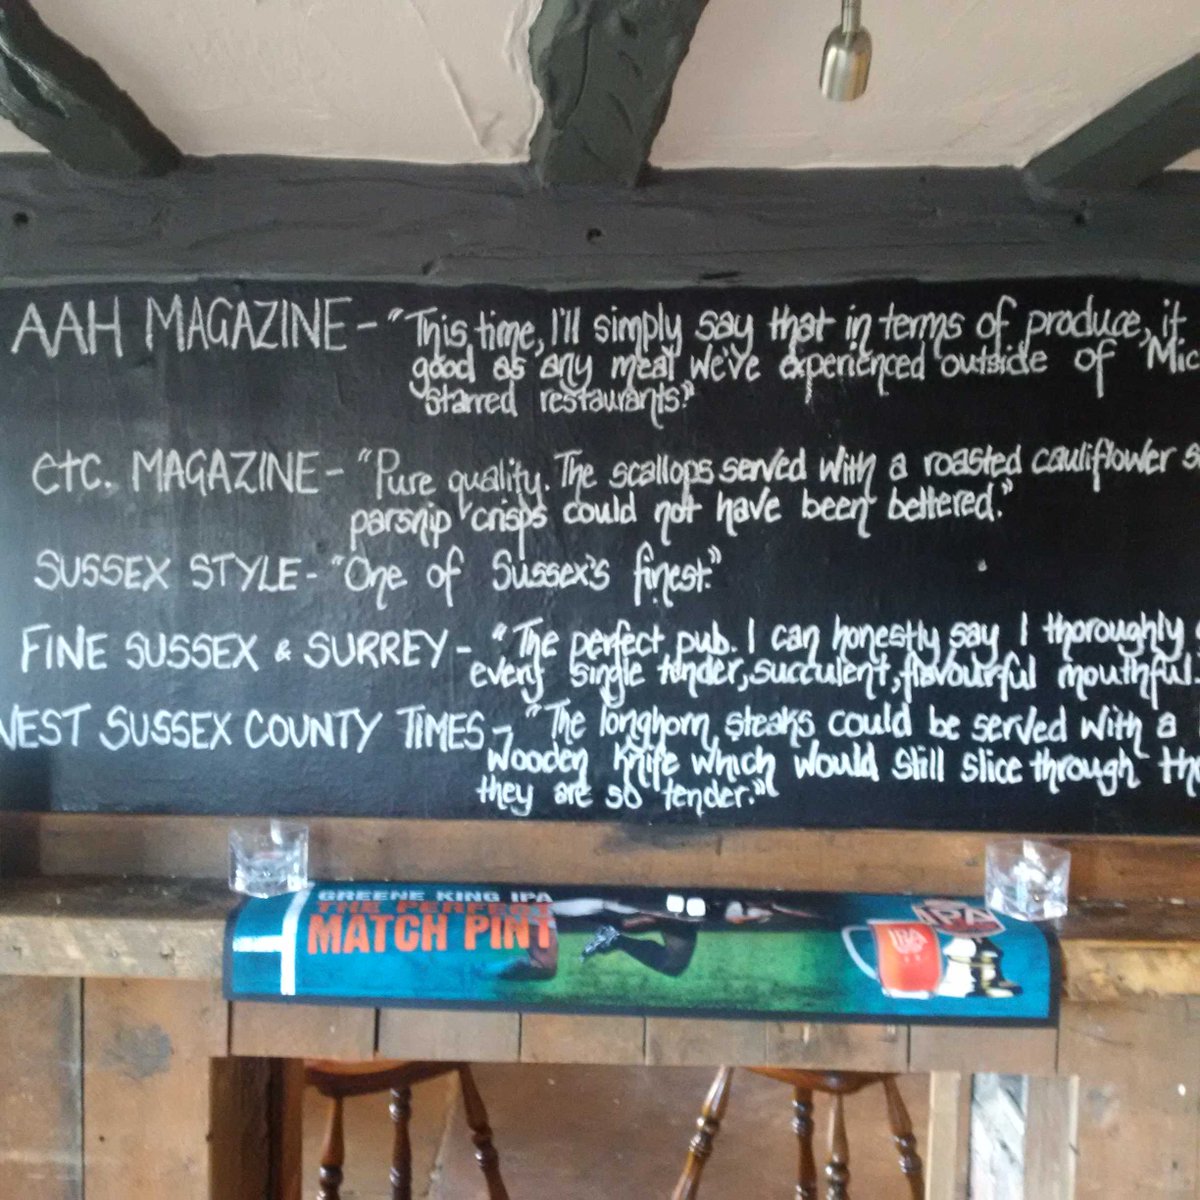 AAH MAGAZINE - "This time, I'll simply say that in terms of produce, it
good as any meal we've experienced outside of Mic
starred restaurants."
etc. MAGAZINE - "Pure quality. The scallops served with a roasted cauliflower s
parsnip crisps could not have been bettered."
SUSSEX STYLE - "One of Sussex's finest."
FINE SUSSEX & SURREY - "The perfect pub. I can honestly say I thoroughly
every single tender, succulent, flavourful mouthful.
WEST SUSSEX COUNTY TIMES - "The longhorn steaks could be served with a
wooden knife which would still slice through th
they are so tender."
GREENE KING IPA
THE PERFECT
MATCH PINT
IPA
IPA